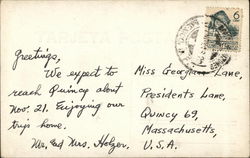 Greetings,
We expect to
reach Quincy about
Nov. 21. Enjoying our
trip home.
Mr. and Mrs. Holzer.
Miss Georgia Lane,
Presidents Lane,
Quincy 69,
Massachusetts,
U.S.A.
6